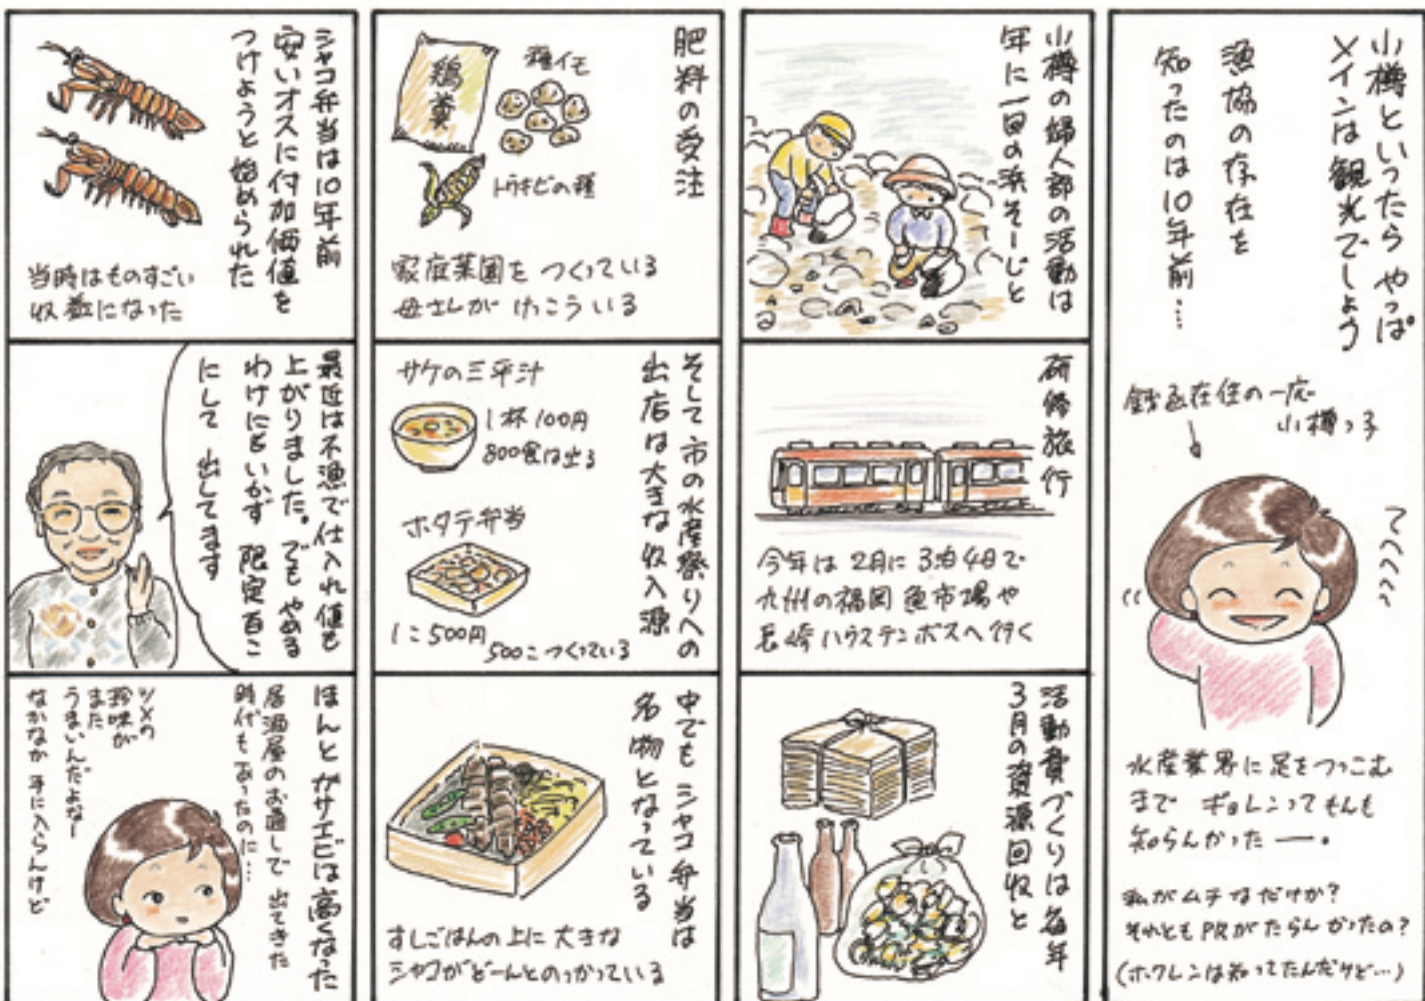 小樽といったら やっぱ
メインは観光でしょう
漁協の存在を
知ったのは10年前…
銭函在住の一応
小樽っ子
水産業界に足をつっこむ
まで ギョレンってもんも
知らんかったー。
私がムチなだけか?
それともPRがたらんかったの?
(ホクレンは知ってたんだけど…)
小樽の婦人部の活動は
年に一回の浜そーじと
研修旅行
今年は 2月に 3泊4日で
九州の福岡 魚市場や
長崎ハウステンボスへ行く
活動費づくりは毎年
3月の資源回収と
肥料の受注
鶏糞
種イモ
トウキビの種
家庭菜園を つくっている
母さんが けっこういる
そして市の水産祭りへの
出店は大きな収入源
サケの三平汁
1杯 100円
800食は出る
ホタテ弁当
1こ500円
500こつくっている
中でもシャコ弁当は
名物となっている
すしごはんの上に 大きな
シャコがどーんとのっかっている
シャコ弁当は10年前
安いオスに付加価値を
つけようと始められた
当時はものすごい
収益になった
最近は不漁で仕入れ値も
上がりました。でも やめる
わけにもいかず 限定百こ
にして 出してます
ほんとガサエビは高くなった
居酒屋のお通しで 出てきた
時代もあったのに…
ツメの
珍味が
また
うまいんだよなー
なかなか 手に入らんけど